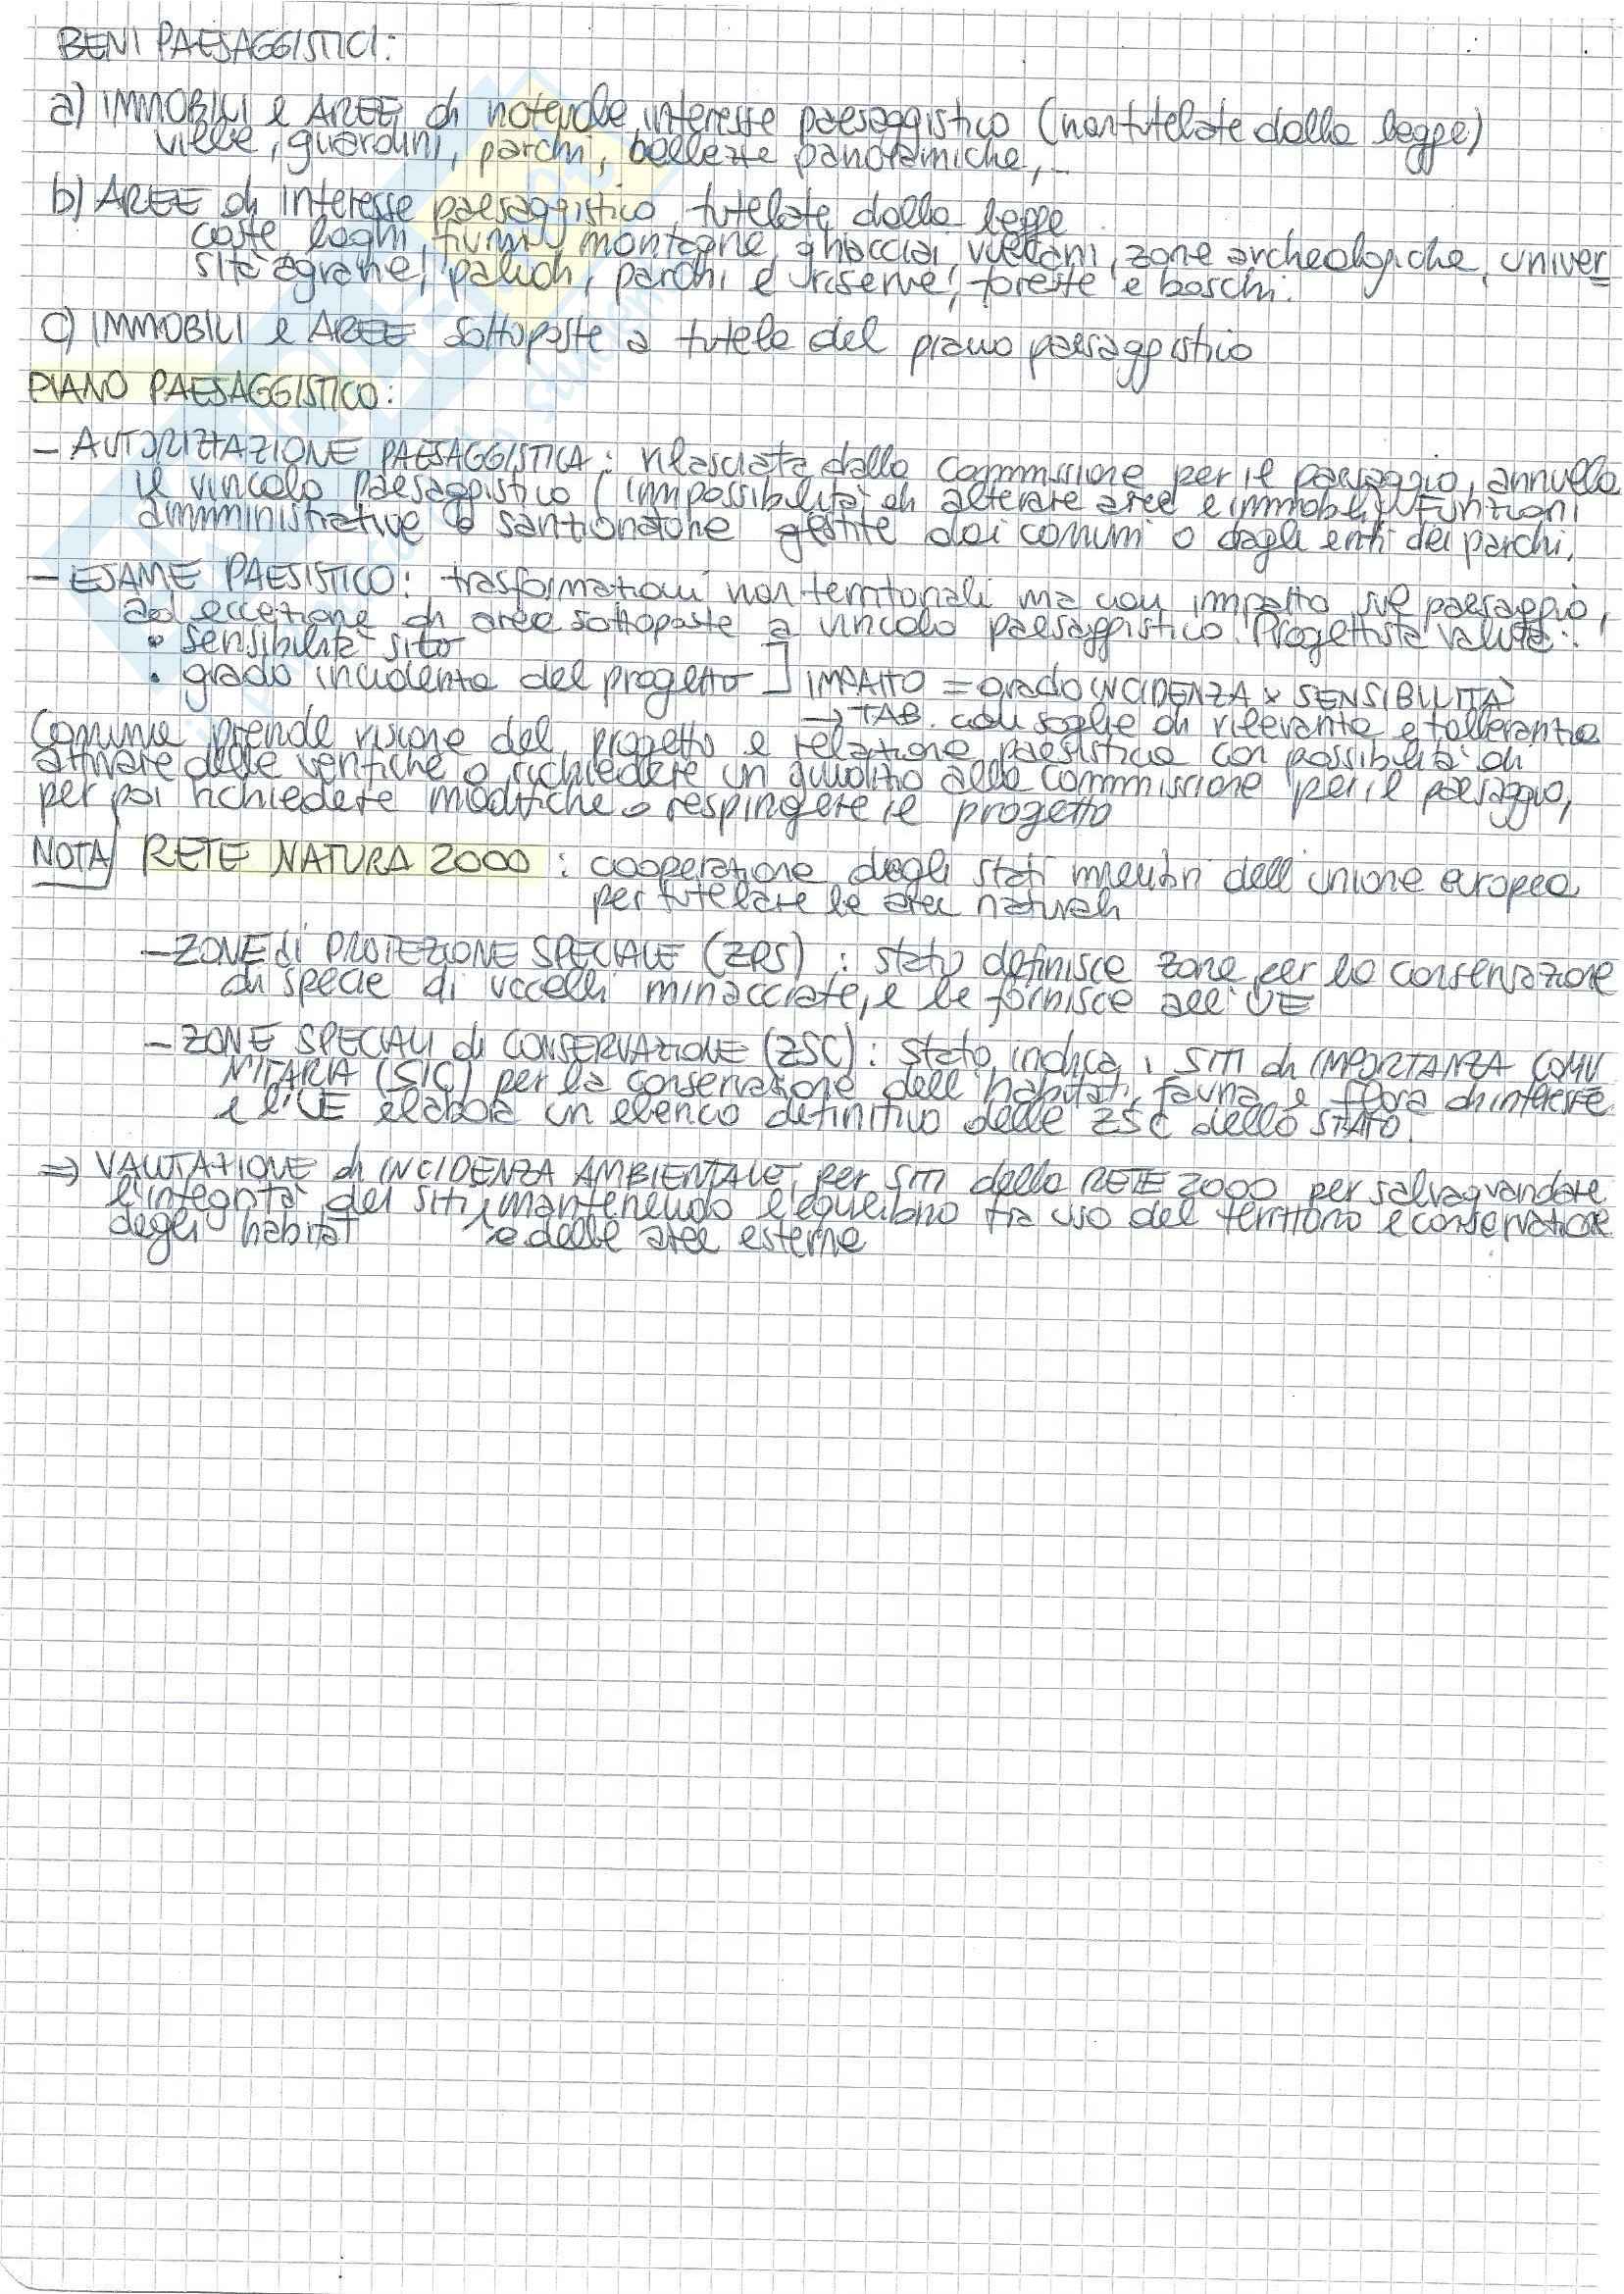 BENI PAESAGGISTICI:
a) IMMOBILI e AREE di notevole interesse paesaggistico (non tutelate dalla legge)
ville, giardini, parchi, bellezze panoramiche,...
b) AREE di interesse paesaggistico tutelate dalla legge
coste, laghi, fiumi, montagne, ghiacciai, vulcani, zone archeologiche, univer
sità agrarie, paludi, parchi e riserve, foreste e boschi.
c) IMMOBILI e AREE sottoposte a tutela del piano paesaggistico
PIANO PAESAGGISTICO:
- AUTORIZZAZIONE PAESAGGISTICA: rilasciata dalla Commissione per il paesaggio, annulla
il vincolo paesaggistico (impossibilità di alterare aree e immobili). Funzioni
amministrative o sanzionatorie gestite dai comuni o dagli enti dei parchi.
- ESAME PAESISTICO: trasformazioni non territoriali ma con impatto sul paesaggio,
ad eccezione di aree sottoposte a vincolo paesaggistico. Progettista valuta:
• sensibilità sito
• grado incidenza del progetto ] IMPATTO = grado INCIDENZA x SENSIBILITÀ
→ TAB. con soglie di rilevanza e tolleranza
Comune prende visione del progetto e relazione paesistica con possibilità di
attivare delle verifiche o richiedere un giudizio alla commissione per il paesaggio,
per poi richiedere modifiche o respingere il progetto
NOTA/ RETE NATURA 2000: cooperazione degli stati membri dell'unione europea
per tutelare le aree naturali
- ZONE di PROTEZIONE SPECIALE (ZPS): stato definisce zone per la conservazione
di specie di uccelli minacciate, e le fornisce all'UE
- ZONE SPECIALI di CONSERVAZIONE (ZSC): stato indica i SITI di IMPORTANZA COMU
NITARIA (SIC) per la conservazione dell'habitat, fauna e flora di interesse
e l'UE elabora un elenco definitivo delle ZSC dello STATO.
⇒ VALUTAZIONE di INCIDENZA AMBIENTALE per SITI della RETE 2000 per salvaguardare
l'integrità dei siti, mantenendo l'equilibrio tra uso del territorio e conservazione
degli habitat e delle aree esterne